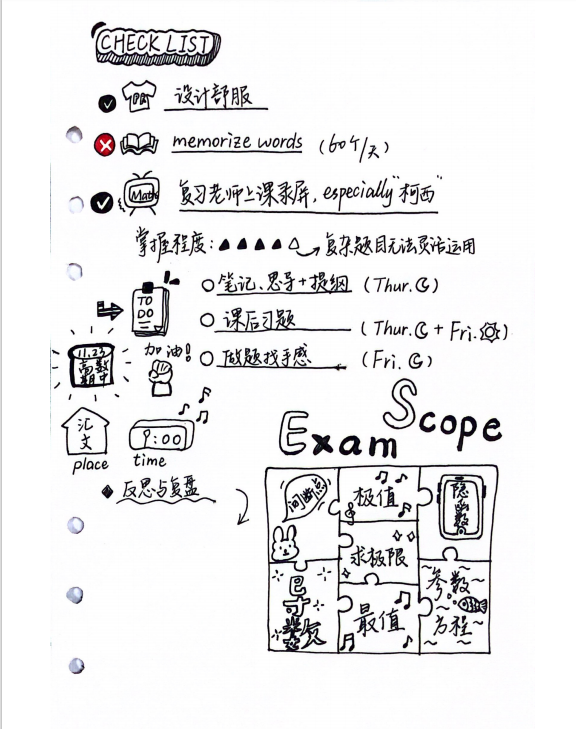 CHECK LIST
设计舒服
memorize words (60个/天)
Math 复习老师上课录屏, especially "柯西"
掌握程度: ▲▲▲▲△ 复杂题目无法灵活运用
TO DO
笔记、思导+提纲 (Thur.)
课后习题 (Thur. + Fri.)
做题找手感 (Fri.)
11.23
高数
期中
加油!
汇文
place
9:00
time
反思与复盘
Exam Scope
间断点
极值
隐函数
求极限
导数
最值
参数
方程